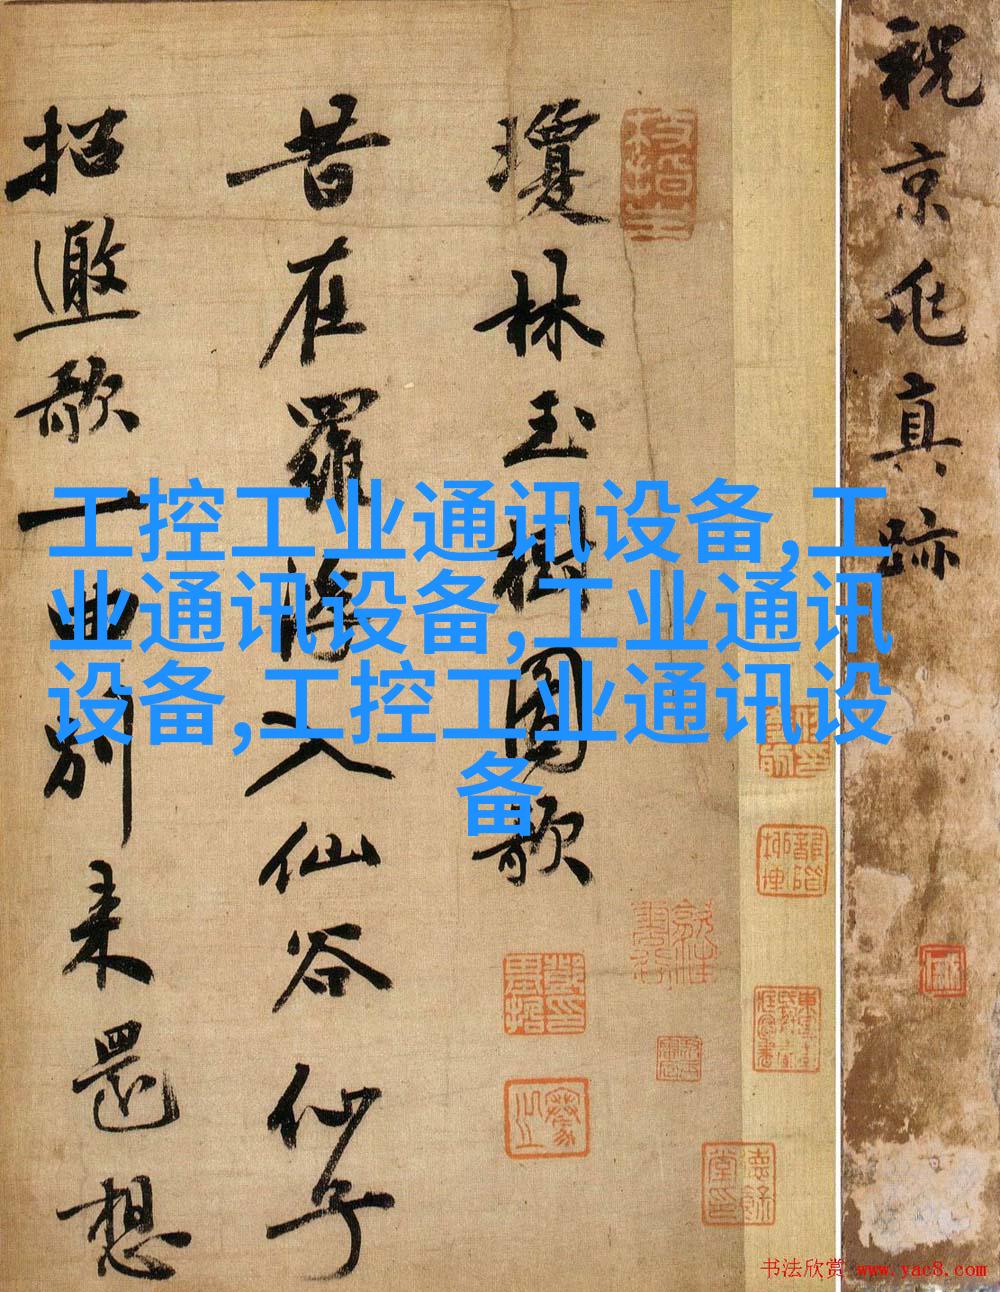 祝京兆真跡
瓊林玉樹圖歌
昔在羅浮入仙谷仙子
招邀歌一曲別来還想
工控工业通讯设备,工
业通讯设备,工业通讯
设备,工控工业通讯设
备
书法欣赏 www.yac8.com